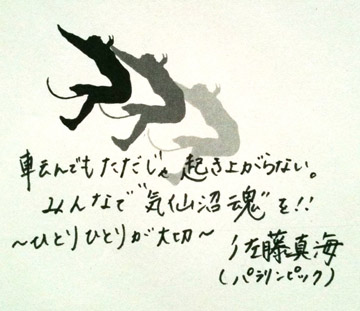 転んでもただじゃ起き上がらない。
みんなで"気仙沼魂"を!!
〜ひとりひとりが大切〜
佐藤真海
(パラリンピック)